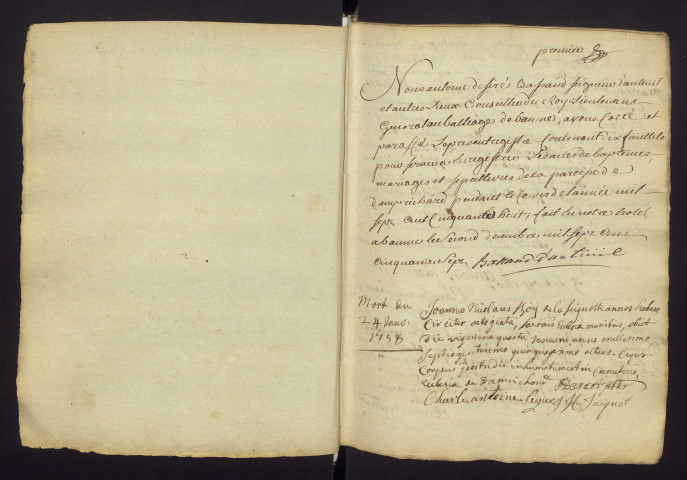 premier
Nous antoine desiré Bassand seigneur d'anteuil
et autres Lieux Conseiller du Roy Lieutenant
General au balliage de baume, avons Cotté et
paraffé Le present registre Contenant dix feuillets
pour servir a Enregistrer Les actes de baptemes,
mariages et sepultures de la paroisse de
damprichard pendant le cours de l'année mil
sept cent Cinquante huit; fait en notre hotel
a baume le second decembre mil sept cent
cinquante sept Bassand d'anteuil
Mort du
24 Janv.
1758
Joannes Nicolaus Boy de la Seignotte annos habens
Circiter octoginta, sacris Ecclesiae munitus, obiit
die vigesima quarta januarii anno millesimo
septingentesimo quinquagesimo octavo. Cujus
Corpus postridie inhumatum est in Cœmeterio
Ecclesiae de Damrichard
Charle antoine